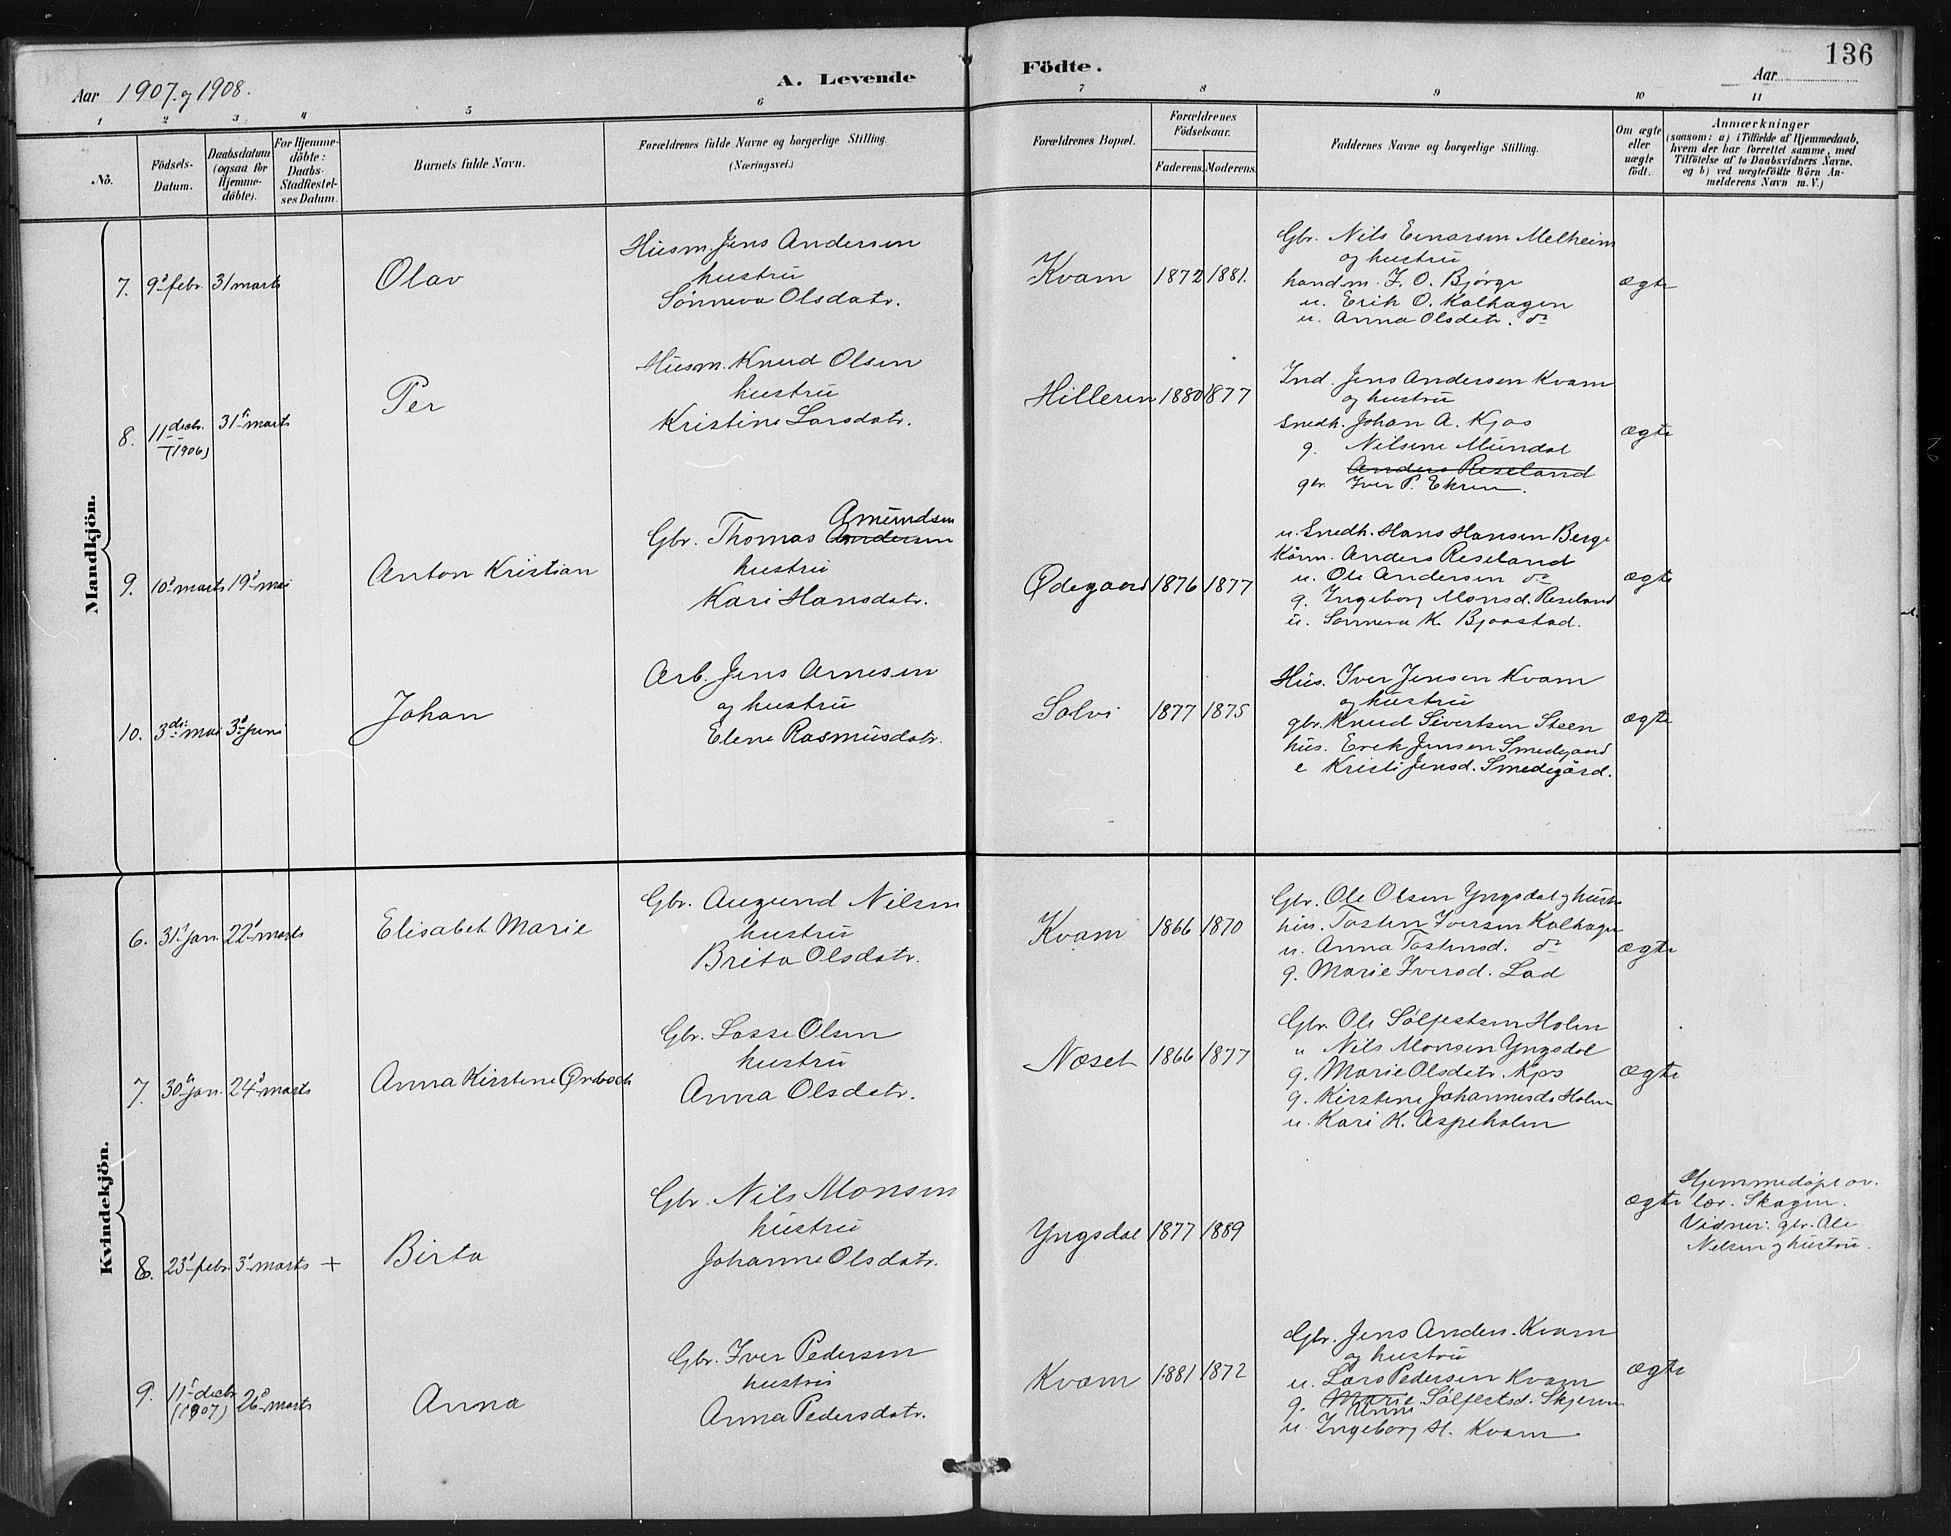 136
Aar 1907. og 1908.
A. Levende Födte.
Aar
1 2 3 4 5 6 7 8 9 10 11
No.
Födsels-Datum.
Daabsdatum (ogsaa for Hjemme-döbte).
For Hjemme-döbte: Daabs-Stadfæstel-ses Datum.
Barnets fulde Navn.
Forældrenes fulde Navne og borgerlige Stilling.
(Næringsvei.)
Forældrenes Bopæl.
Forældrenes Födselsaar.
Faderens. Moderens.
Faddernes Navne og borgerlige Stilling.
Om ægte eller uægte födt.
Anmærkninger
(saasom: a) i Tilfælde af Hjemmedaab, hvem der har forrettet samme, med Tilföielse af to Daabsvidners Navne. og b) ved uægtefödte Börn An-melderens Navn m. V.)
Mandkjön.
7. 9' febr. 31 marts
Olav
Husm. Jens Andersen
hustru
Sønneva Olsdatr.
Kvam 1872 1881.
Gbr. Nils Einarsen Melheim
og hustru
handm. J. O. Bjørge
u. Erik O. Kalhagen
u. Anna Olsdatr. do
ægte
8. 11 decbr. (1906) 31' marts
Per
Husm. Knud Olsen
hustru
Kristine Larsdatr.
Hilleren 1880 1877
Ind. Jens Andersen Kvam
og hustru
Snedk. Johan A. Kjos
g. Nilsine Mundal
Anders Reseland
gbr. Iver P. Ekren.
ægte
9. 10' marts 19' mai
Anton Kristian
Amundsen
Gbr. Thomas Andersen
hustru
Kari Hansdatr.
Ødegaard 1876 1877
u. Snedk. Hans Hansen Berge
Kårm. Anders Reseland
u. Ole Andersen do
g. Ingeborg Monsd. Reseland
u. Sønneva K. Bjåstad.
ægte
10. 3de mai 3' juni
Johan
Arb. Jens Arnesen
og hustru
Elene Rasmusdatr.
Solvi 1877 1875
Hus. Iver Jensen Kvam
og hustru
gbr. Knud Sivertsen Steen
hus. Erik Jensen Smedegaard
e Kristi Jensd. Smedegård.
ægte
Kvindekjön.
6. 31' jan. 22' marts
Elisabet Marie
Gbr. Augund Nilsen
hustru
Brita Olsdatr.
Kvam 1866 1870
Gbr. Ole Olsen Yngsdal og hustru
hus. Tosten Iversen Kalhagen
u. Anna Tostensd. do
g. Marie Iversd. Lad
ægte
7. 30' jan. 24' marts
Anna Kirstine Ørebach
Gbr. Lasse Olsen
hustru
Anna Olsdatr.
Næset 1866 1877
Gbr. Ole Sølfestsen Holen
u Nils Monsen Yngsdal
g. Marie Olsdatr. Kjos
g. Kirstine Johannesdr Holen
u. Kari K. Aspeholen
ægte
8. 23' febr. 3' marts +
Birta
Gbr. Nils Monsen
hustru
Johanne Olsdatr.
Yngsdal 1877 1889
ægte
Hjemmedøpt av.
lær. Skagen.
Vidner: gbr. Ole
Nelsen og hustru.
9. 11' decbr (1907) 26' marts
Anna
Gbr. Iver Pedersen
hustru
Anna Pedersdatr.
Kvam 1881 1872
Gbr. Jens Anders. Kvam
og hustru
u. Lars Pedersen Kvam
g. Marie Sølfestsd. Skjeren
Anne
u. Ingeborg H. Kvam
ægte